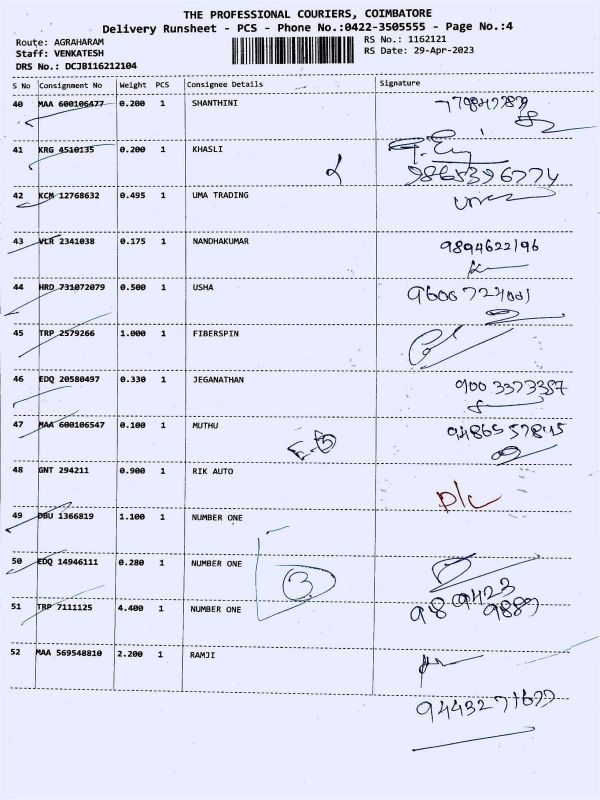 THE PROFESSIONAL COURIERS, COIMBATORE
Delivery Runsheet - PCS - Phone No.:0422-3505555 - Page No.:4
Route: AGRAHARAM RS No.: 1162121
Staff: VENKATESH RS Date: 29-Apr-2023
DRS No.: DCJB116212104
S No Consignment No Weight PCS Consignee Details Signature
40 MAA 600106477 0.200 1 SHANTHINI
41 KRG 4510135 0.200 1 KHASLI
9865396774
42 KCM 12768632 0.495 1 UMA TRADING
43 VLR 2341038 0.175 1 NANDHAKUMAR 9894622196
44 HRD 731072079 0.500 1 USHA
45 TRP 2579266 1.000 1 FIBERSPIN
46 EDQ 20580497 0.330 1 JEGANATHAN 900 3373387
47 MAA 600106547 0.100 1 MUTHU
48 GNT 294211 0.900 1 RIK AUTO D/L
49 DBU 1366819 1.100 1 NUMBER ONE
50 EDQ 14946111 0.280 1 NUMBER ONE
3
51 TRP 7111125 4.400 1 NUMBER ONE
52 MAA 569548810 2.200 1 RAMJI